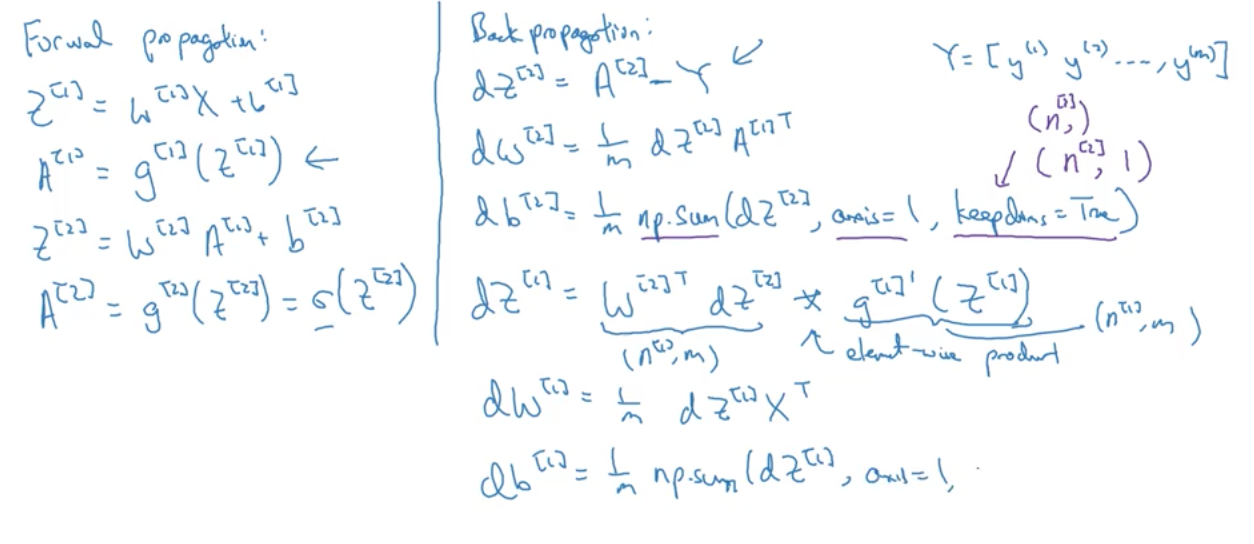 Forwal propagation:
Z^[1] = W^[1]X + b^[1]
A^[1] = g^[1](Z^[1]) ←
Z^[2] = W^[2] A^[1] + b^[2]
A^[2] = g^[2](Z^[2]) = σ(Z^[2])
Back propagation:
dZ^[2] = A^[2] - Y ↙
dW^[2] = 1/m dZ^[2] A^[1]T
db^[2] = 1/m np.sum(dZ^[2], axis=1, keepdims=True)
dZ^[1] = W^[2]T dZ^[2] * g^[1]'(Z^[1])
(n^[1], m) ↖ element-wise product (n^[1], m)
dW^[1] = 1/m dZ^[1] X^T
db^[1] = 1/m np.sum(dZ^[1], axis=1,
Y = [y^(1) y^(2) ..., y^(m)]
↙ (n^[2], 1)